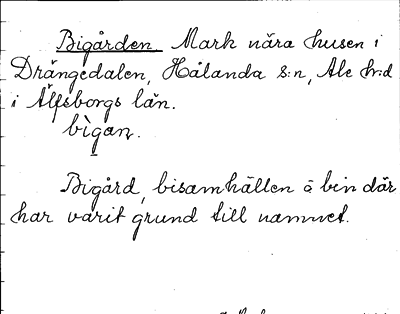 Bigården Mark nära husen i
Drängedalen, Hålanda s:n, Ale h:d
i Älfsborgs län.
bìgan.
Bigård, bisamhällen å bin där
har varit grund till namnet.